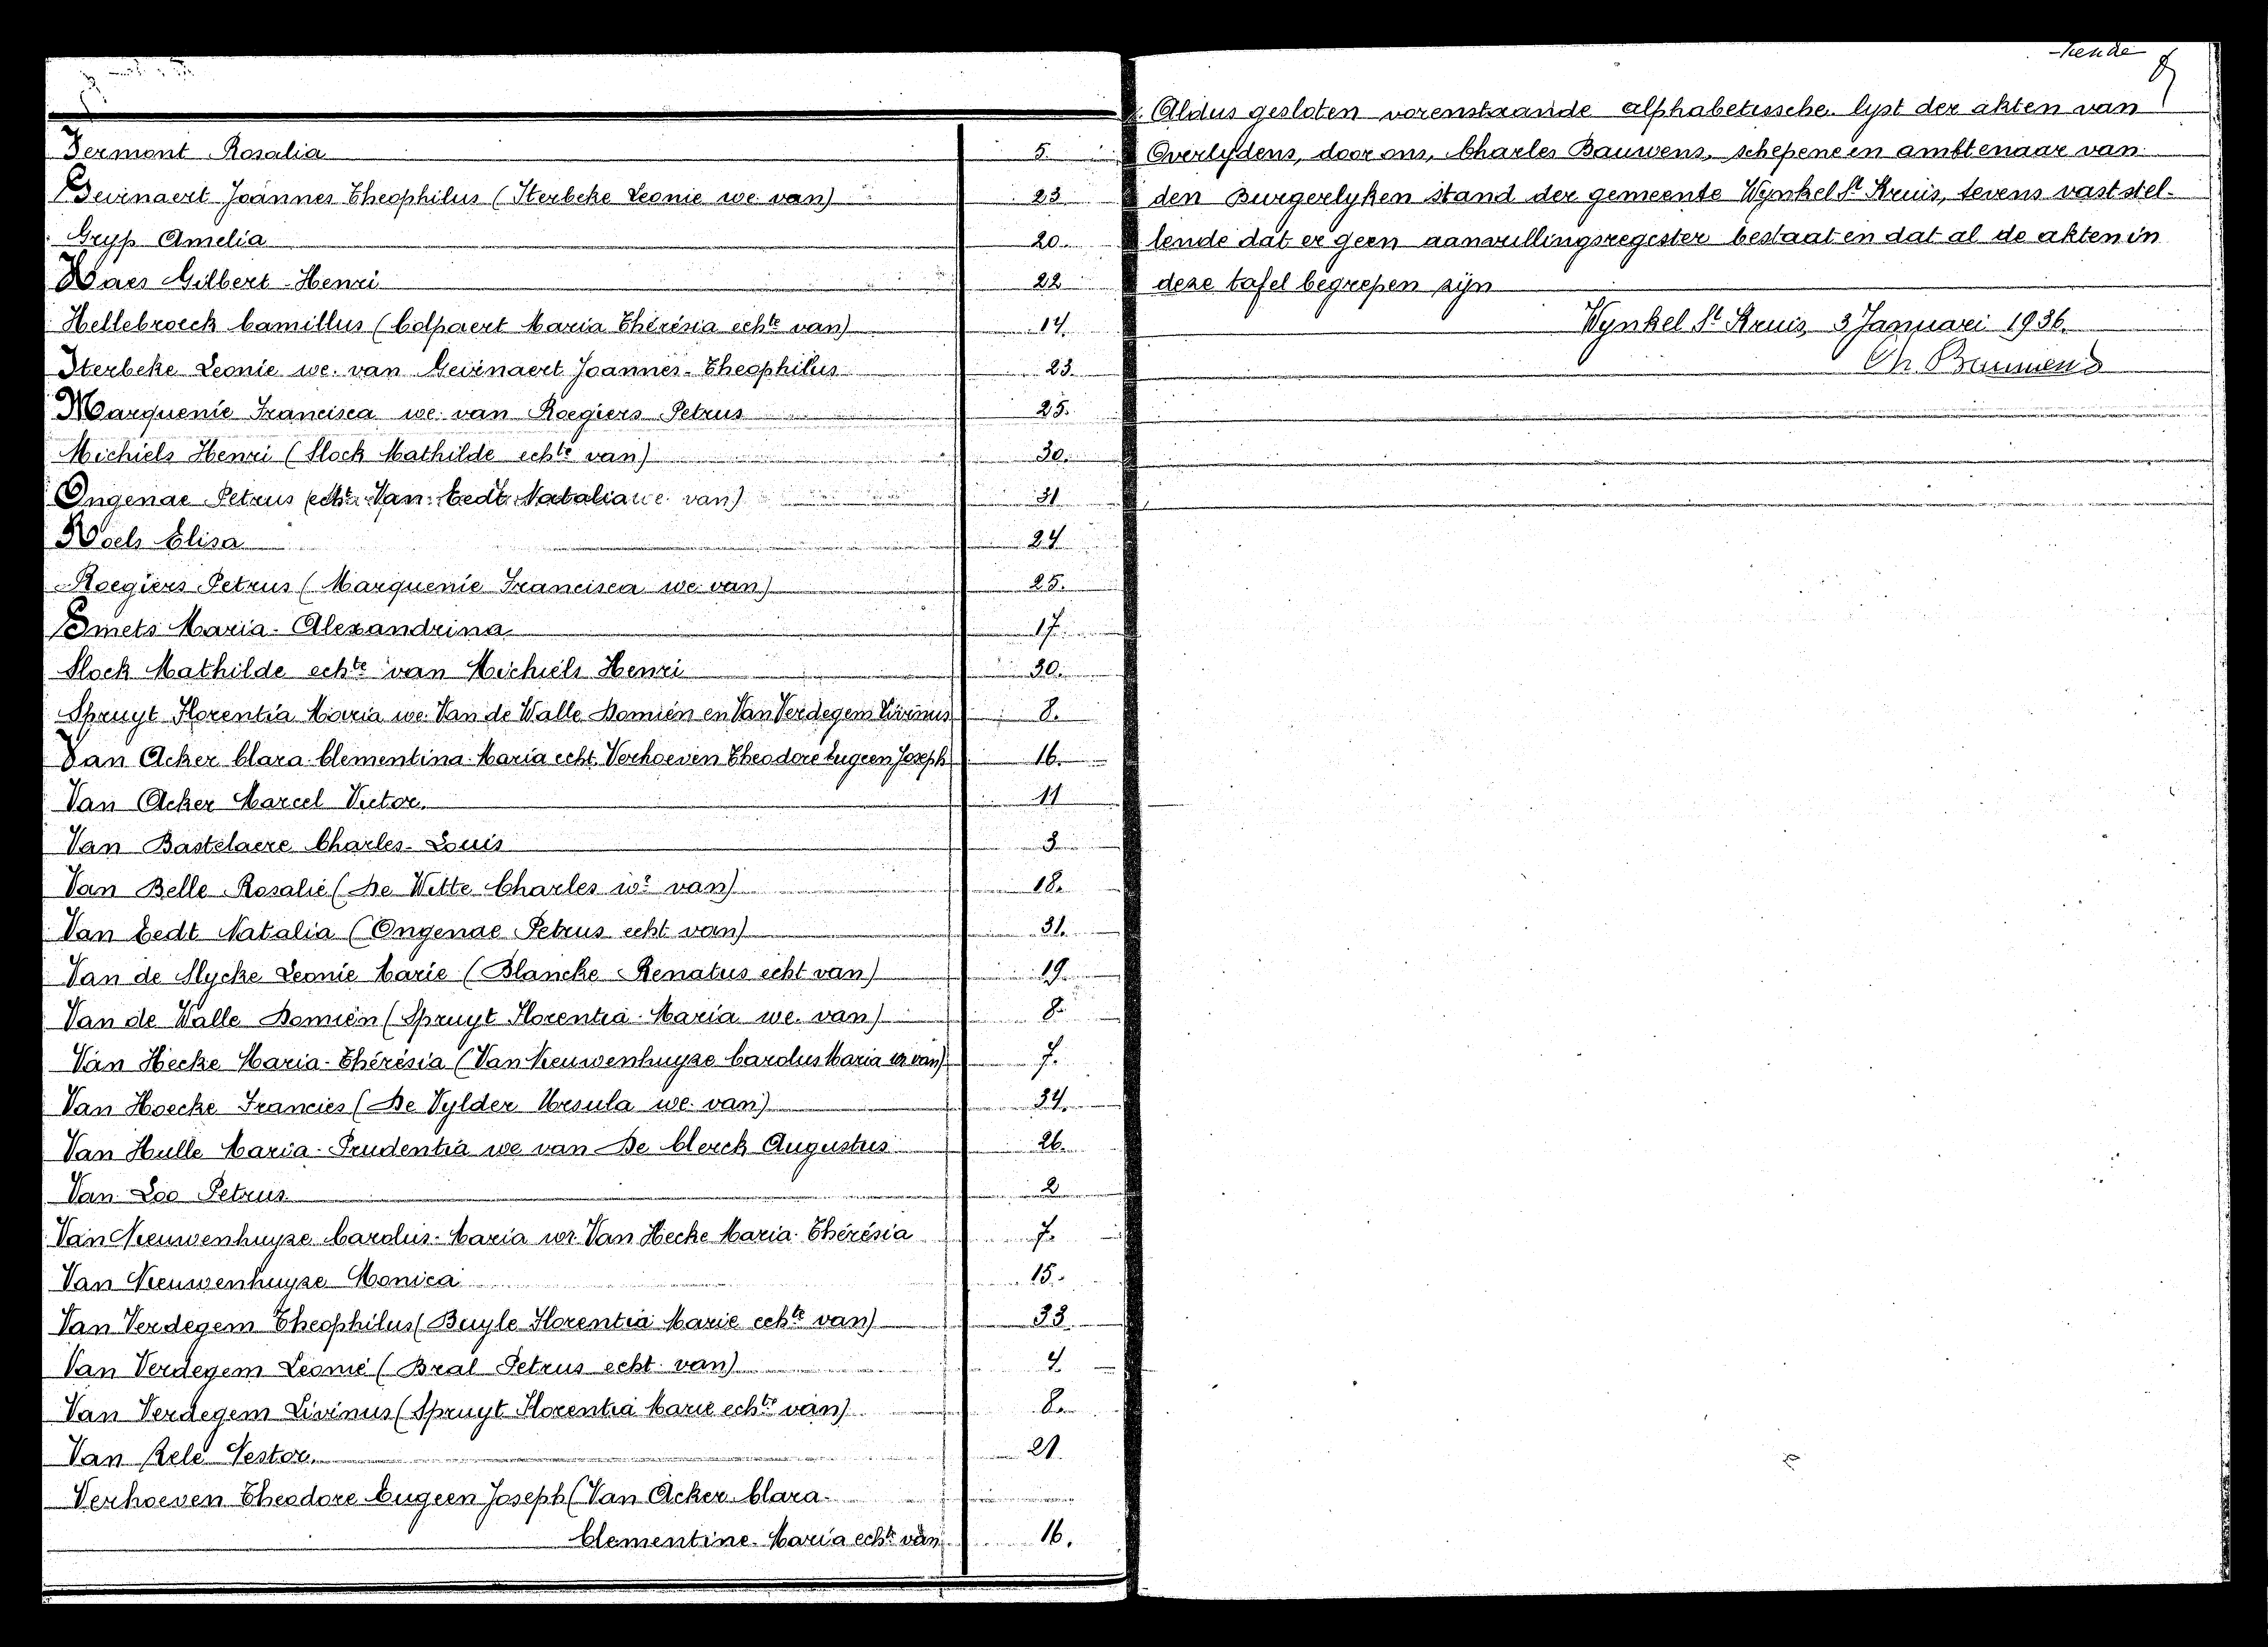 Fermont Rosalia 5.
Gevenaert Joannes Theophilus (Sterbeke Leonie we. van) 23
Gryp Amelia 20.
Haes Gilbert-Henri 22
Hellebroeck Camillus (Colpaert Maria Thérésia echte van) 14.
Sterbeke Leonie we. van Gevenaert Joannes-Theophilus 23.
Marquenie Francisca we. van Roegiers Petrus 25.
Michiels Henri (Slock Mathilde echte van) 30.
Ongenae Petrus (echt. Van Eedt Natalia we. van) 31
Roels Elisa 24
Roegiers Petrus (Marquenie Francisca we. van) 25.
Smets Maria-Alexandrina 17.
Slock Mathilde echte van Michiels Henri 30.
Spruyt Florentia Maria we. Van de Walle Domien en Van Verdegem Livinus 8.
Van Acker Clara-Clementina-Maria echt. Verhoeven Theodore Eugeen Joseph 16.
Van Acker Marcel Victor. 11
Van Bastelaere Charles-Louis 3
Van Belle Rosalie (De Witte Charles wr van) 18.
Van Eedt Natalia (Ongenae Petrus echt van) 31.
Van de Slycke Leonie Marie (Blancke Renatus echt van) 19
Van de Walle Domien (Spruyt Florentia-Maria we. van) 8.
Van Hecke Maria-Thérésia (Van Nieuwenhuyse Carolus Maria wr van) 7.
Van Hoecke Francies (De Vylder Ursula we. van) 34.
Van Hulle Maria-Prudentia we van De Clerck Augustus 26.
Van Loo Petrus 2
Van Nieuwenhuyse Carolus-Maria wr. Van Hecke Maria-Thérésia 7.
Van Nieuwenhuyse Monica 15.
Van Verdegem Theophilus (Buyle Florentia Marie echte van) 33.
Van Verdegem Leonie (Bral Petrus echt van) 4.
Van Verdegem Livinus (Spruyt Florentia Marie echte van) 8.
Van Zele Nestor. 21.
Verhoeven Theodore Eugeen Joseph (Van Acker Clara-
Clementine-Maria echte van 16.
Aldus gesloten vorenstaande alphabetissche lyst der akten van
Overlydens, door ons, Charles Bauwens, schepene en ambtenaar van
den Burgerlyken stand der gemeente Wynkel St Kruis, tevens vast stel-
lende dat er geen aanvullingsregister bestaat en dat al de akten in
deze tafel begrepen zyn
Wynkel St Kruis, 3 Januari 1936.
Ch. Bauwens